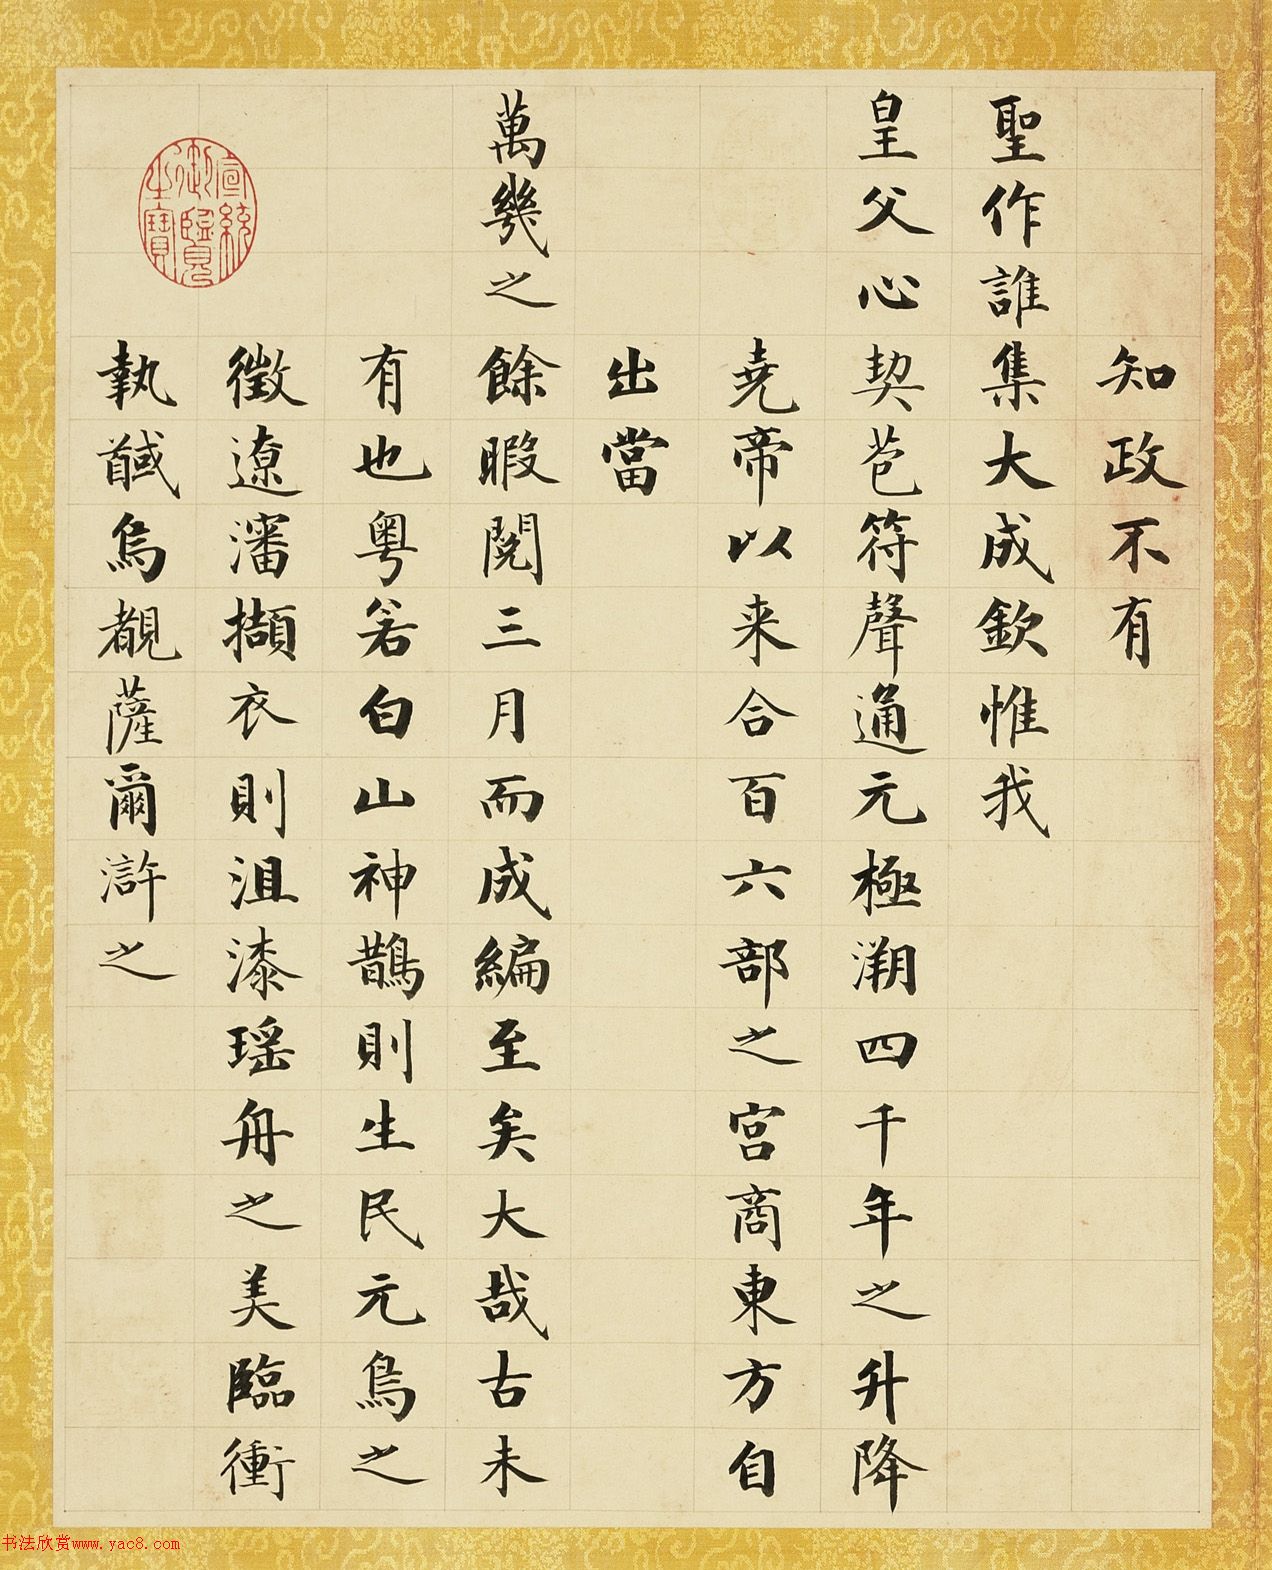 知政不有
聖作誰集大成欽惟我
皇父心契苞符聲通元極溯四千年之升降
堯帝以来合百六部之宮商東方自
出當
萬幾之餘暇閱三月而成編至矣大哉古未
有也粤若白山神鵲則生民元鳥之
徵遼瀋擷衣則沮漆瑶舟之美臨衝
執馘烏覩薩爾滸之
宣統御覽之寶
书法欣赏www.yac8.com